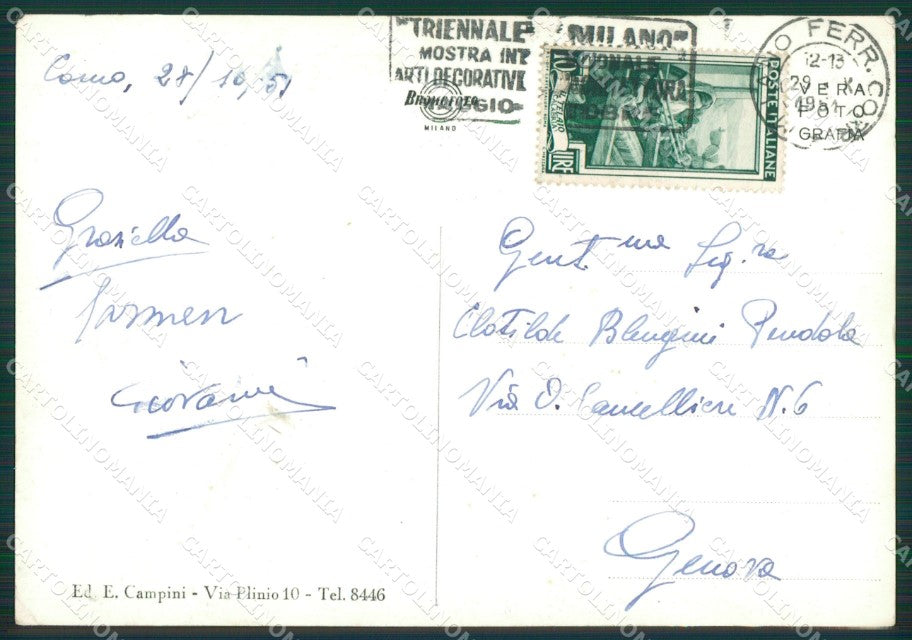 Como, 28/10/51
"TRIENNALE"
MOSTRA INT
ARTI DECORATIVE
MAGGIO
MILANO
"MILANO"
POSTE ITALIANE
LIRE
FERR. COM
12-13
29 X
1951
VERA
FOTO
GRAFIA
Graziella
Carmen
Giovanni
Gent.ma Sig.ra
Clotilde Blengini Pendola
Via O. Cancellieri N. 6
Genova
Ed. E. Campini - Via Plinio 10 - Tel. 8446
CARTOLINOMANIA